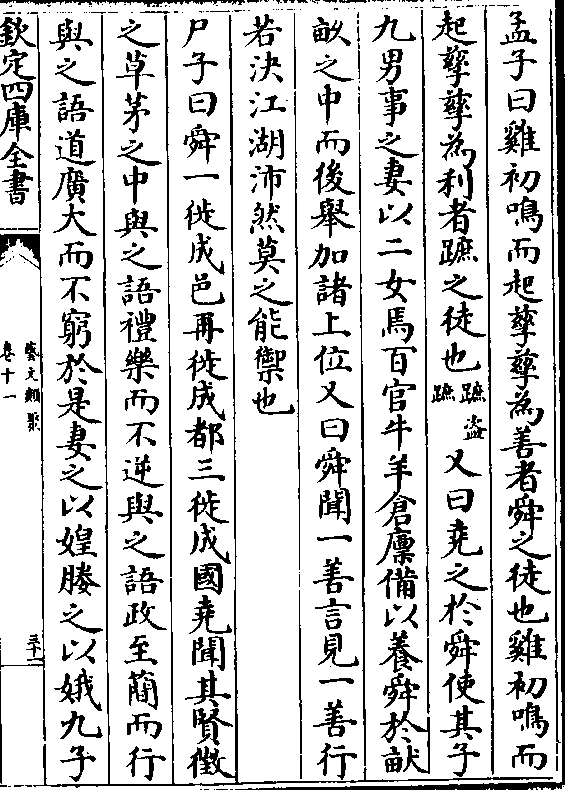 孟子曰雞初鳴而起孳孳為善者舜之徒也雞初鳴而
起孳孳為利者蹠之徒也蹠盜蹠又曰堯之於舜使其子
九男事之妻以二女焉百官牛羊倉廩備以養舜於畎
畝之中而後舉加諸上位又曰舜聞一善言見一善行
若決江湖沛然莫之能禦也
尸子曰舜一徙成邑再徙成都三徙成國堯聞其賢徵
之草茅之中與之語禮樂而不逆與之語政至簡而行
與之語道廣大而不窮於是妻之以媓媵之以娥九子
欽定四庫全書
藝文類聚
卷十一
三十一